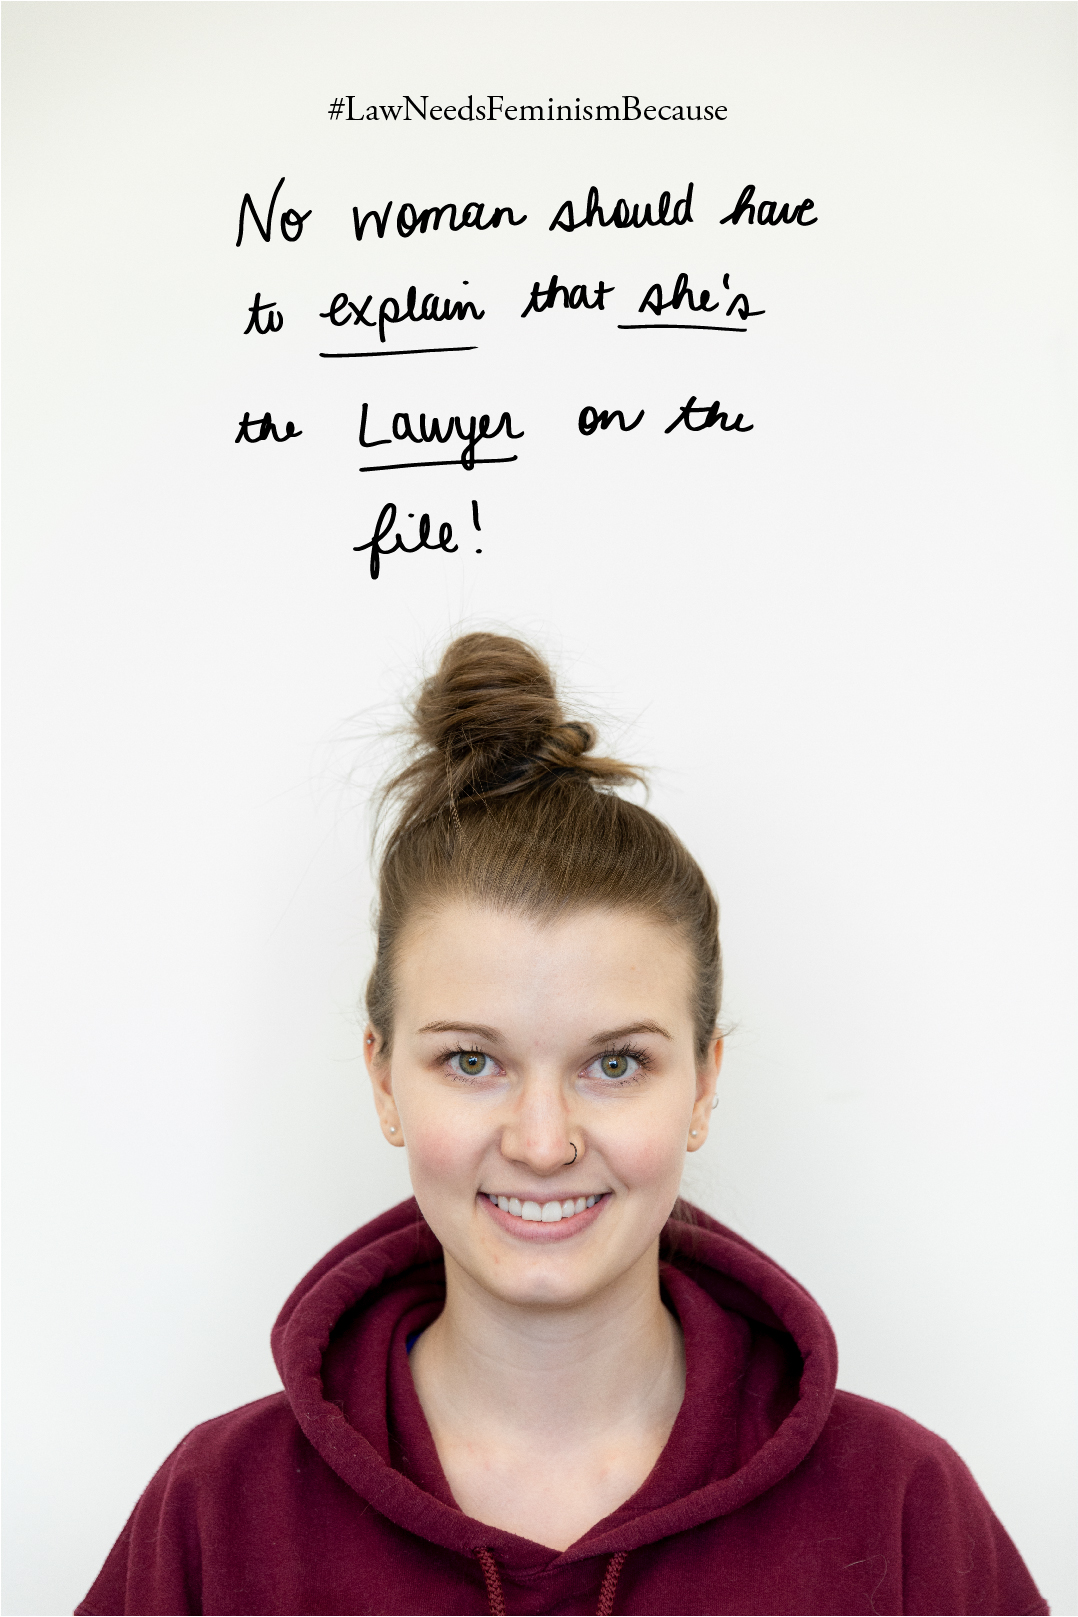 #LawNeedsFeminismBecause
No woman should have
to explain that she's
the Lawyer on the
file!